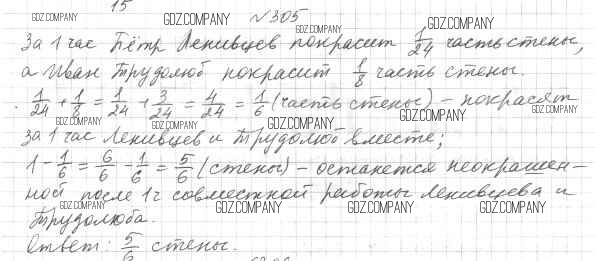 15
GDZ.COMPANY №305 GDZ.COMPANY
GDZ.COMPANY
За 1 час Пётр Ленивцев покрасит 1/24 часть стены,
GDZ.COMPANY GDZ.COMPANY
а Иван Трудолюб покрасит 1/8 часть стены.
1/24 + 1/8 = 1/24 + 3/24 = 4/24 = 1/6 (часть стены) – покрасят
GDZ.COMPANY GDZ.COMPANY GDZ.COMPANY GDZ.COMPANY GDZ.COMPANY
за 1 час Ленивцев и Трудолюб вместе;
1 - 1/6 = 6/6 - 1/6 = 5/6 (стены) – останется неокрашен-
GDZ.COMPANY GDZ.COMPANY GDZ.COMPANY
ной после 1ч совместной работы Ленивцева и
GDZ.COMPANY GDZ.COMPANY GDZ.COMPANY GDZ.COMPANY
Трудолюба.
Ответ: 5/6 стены.
GDZ.COMPANY GDZ.COMPANY